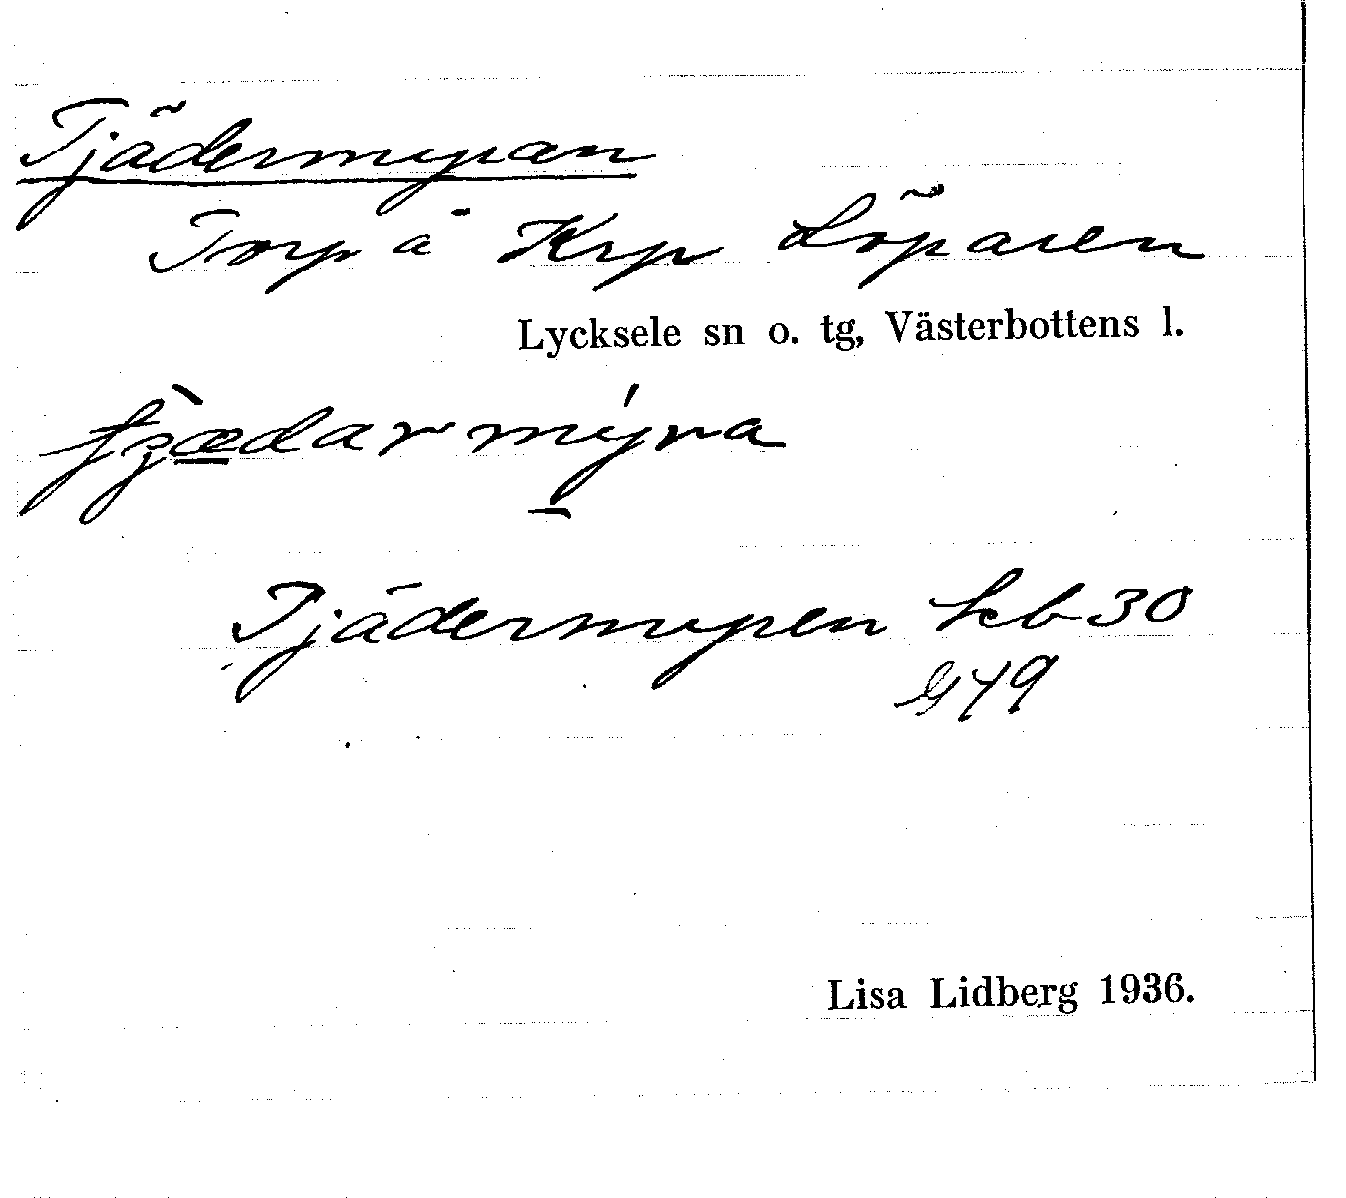 Tjädermyran
Torp å Krp Löparen
Lycksele sn o. tg, Västerbottens l.
Tjädermyren kb 30
Lisa Lidberg 1936.